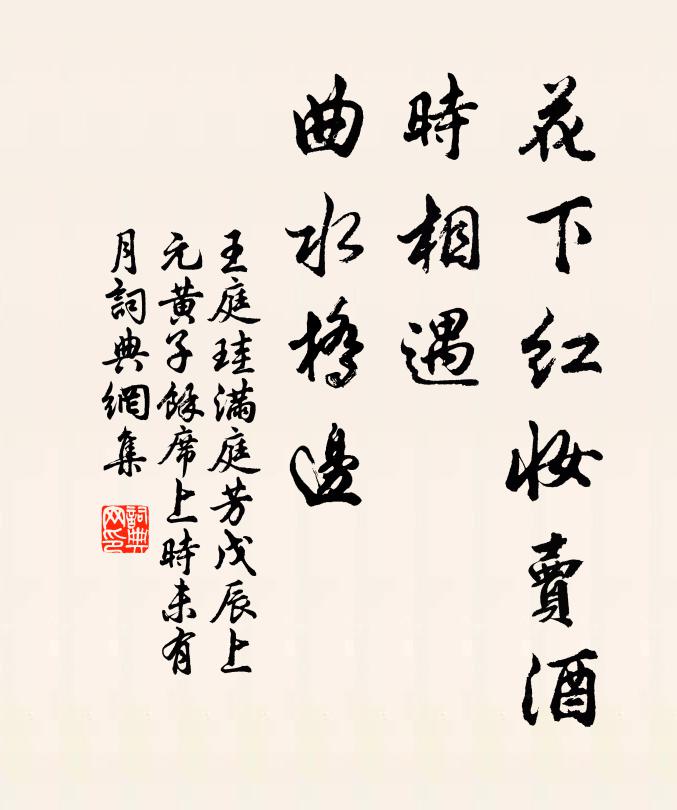 花下红妆賣酒
時相遇
曲水橋邊
王庭珪滿庭芳戊辰上
元黃子餘席上時未有
月詞典網集
詞典网印